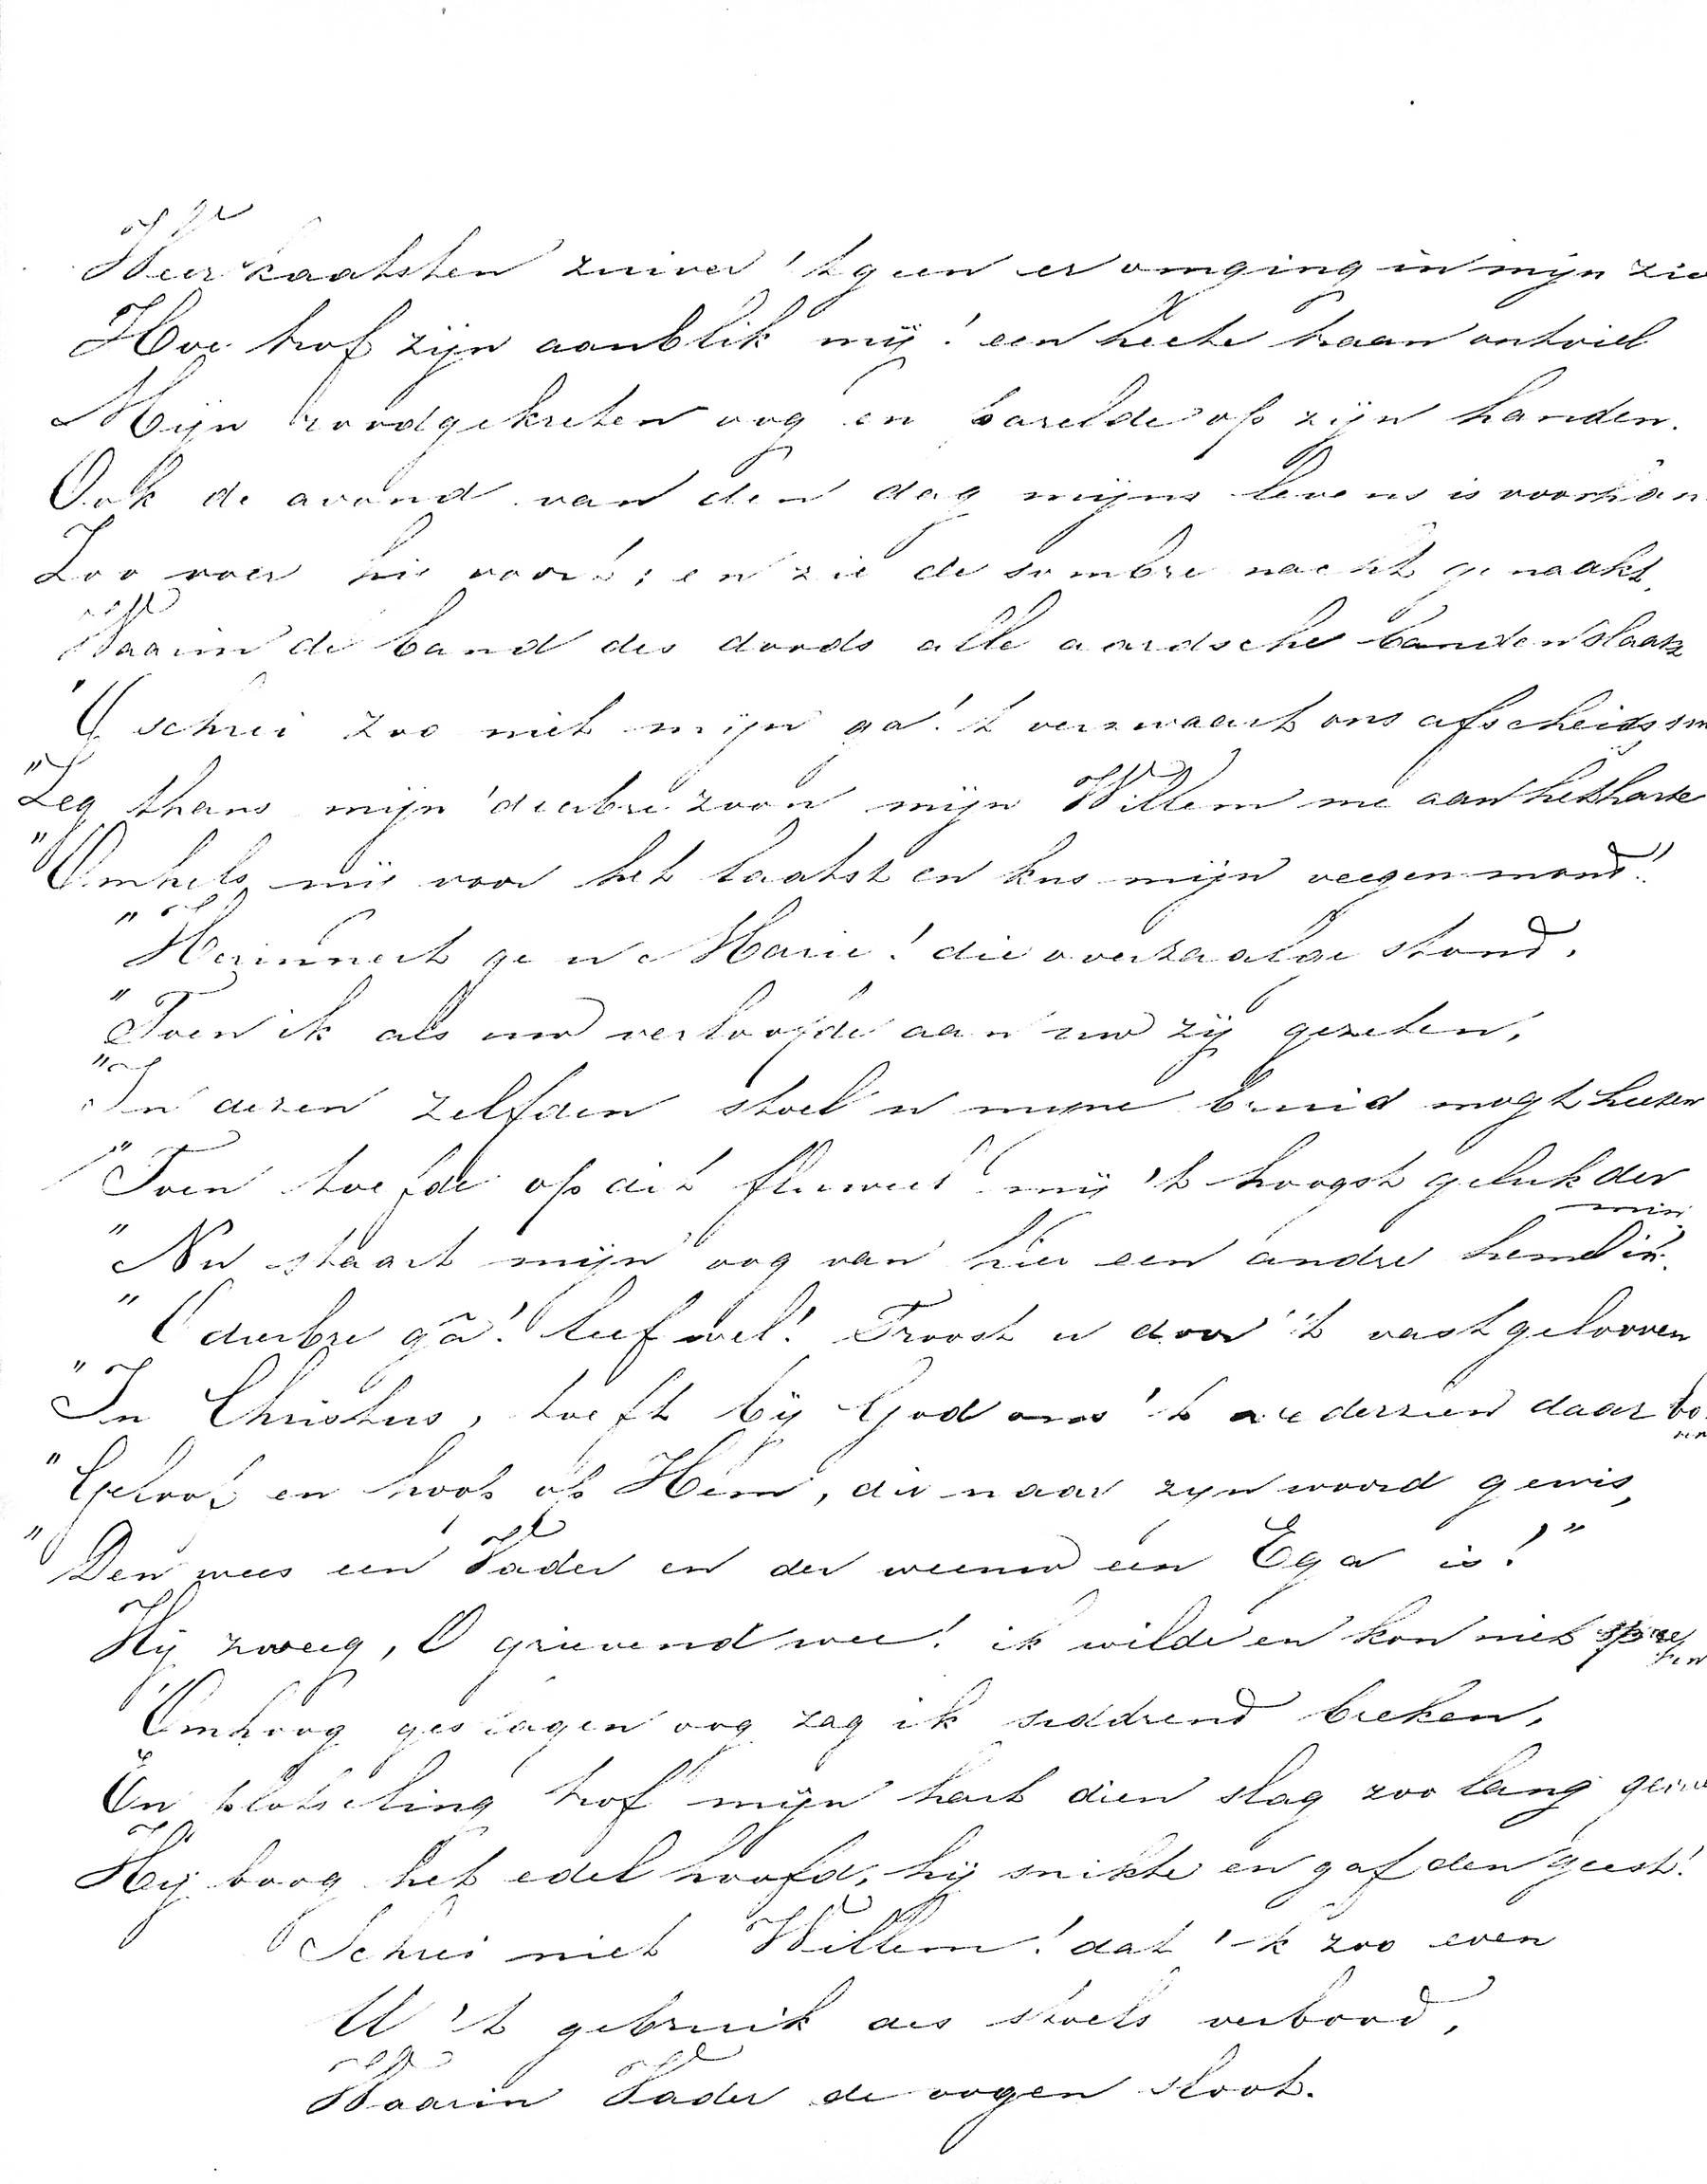 Weerkaatsten zuiver 't geen er omging in mijn zie
Hoe trof zijn aanblik mij! een heete traan ontviel
Mijn roodgekreten oog en parelde op zijn handen.
Ook de avond van den dag mijns levens is voorhan
Zoo voer hij voort; en zie de sombre nacht genaakt,
Waarin de band des doods alle aardsche banden slaakt
"O schrei zoo niet mijn ga! 't verzwaart ons afscheidssm
"Leg thans mijn dierbre zoon mijn Willem me aan het harte
"Omhels mij voor het laatst en kus mijn veegen mond!
"Herinnert ge u Marie! die overzaalge stond,
"Toen ik als uw verloofde aan uw zij gezeten,
"In dezen zelfden stoel u mijne bruid mogt heeten
"Toen toefde op dit fluweel mij 't hoogst geluk der
min
"Nu staart mijn oog van hier een andre hemel in.
"O dierbre gâ! leef wel! Troost u door 't vast gelooven
"In Christus, toeft bij God ons 't wederzien daar bo
ven
"Geloof en hoop op Hem, die naar zijn woord gewis,
"Den wees een Vader en der weeuw een Ega is!"
Hij zweeg, O grievend wee! ik wilde en kon niet spre
ken
Omhoog geslagen oog zag ik siddrend breken,
En plotseling trof mijn hart dien slag zoo lang
Hij boog het edel hoofd, hij snikte en gaf den geest!
Schrei niet Willem! dat 'k zoo even
U 't gebruik des stoels verbood,
Waarin Vader de oogen sloot.